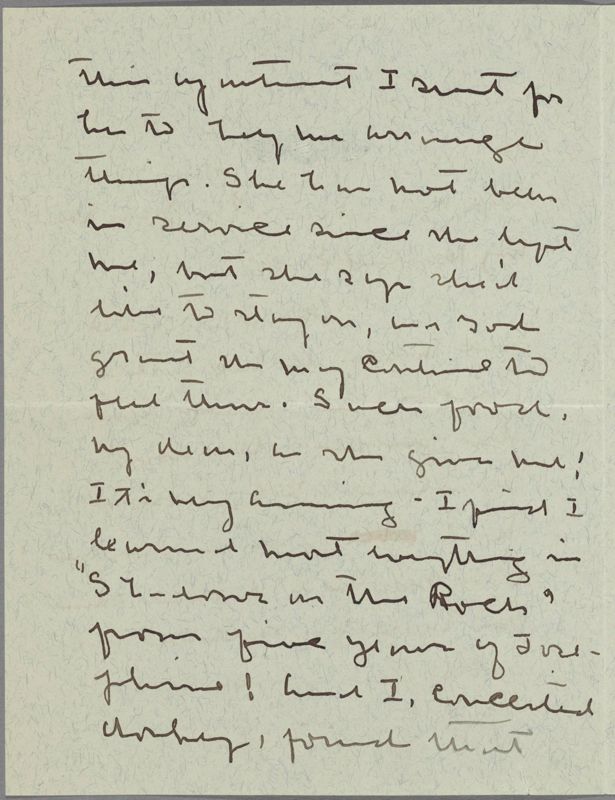 this apartment I sent for
her to help me arrange
things. She has not been
in service since she left
me, but she says she'd
like to stay on, and God
grant she may continue to
feel thus. Such food,
my dear, as she gives me!
It's very amusing - I find I
learned most everything in
"Shadows on the Rock"
from five years of Jose-
phine! And I, conceited
donkey, found that